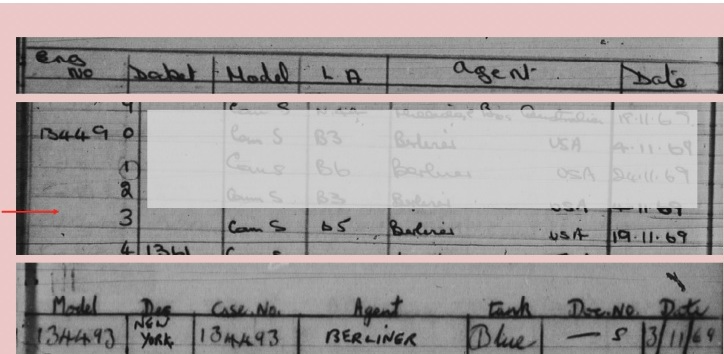 eng No Datet Model L A agent Date
Cam S Australia 18.11.69
13449 0 Cam S B3 Berliner USA 4.11.69
1 Cam S B6 Berliner USA 24.11.69
2 Cam S B3 Berliner USA 4.11.69
3 Cam S B5 Berliner USA 19.11.69
4
Model Des Case. No. Agent tank Doc. No. Date
134493 NEW YORK 134493 BERLINER Blue — S 3/11/69